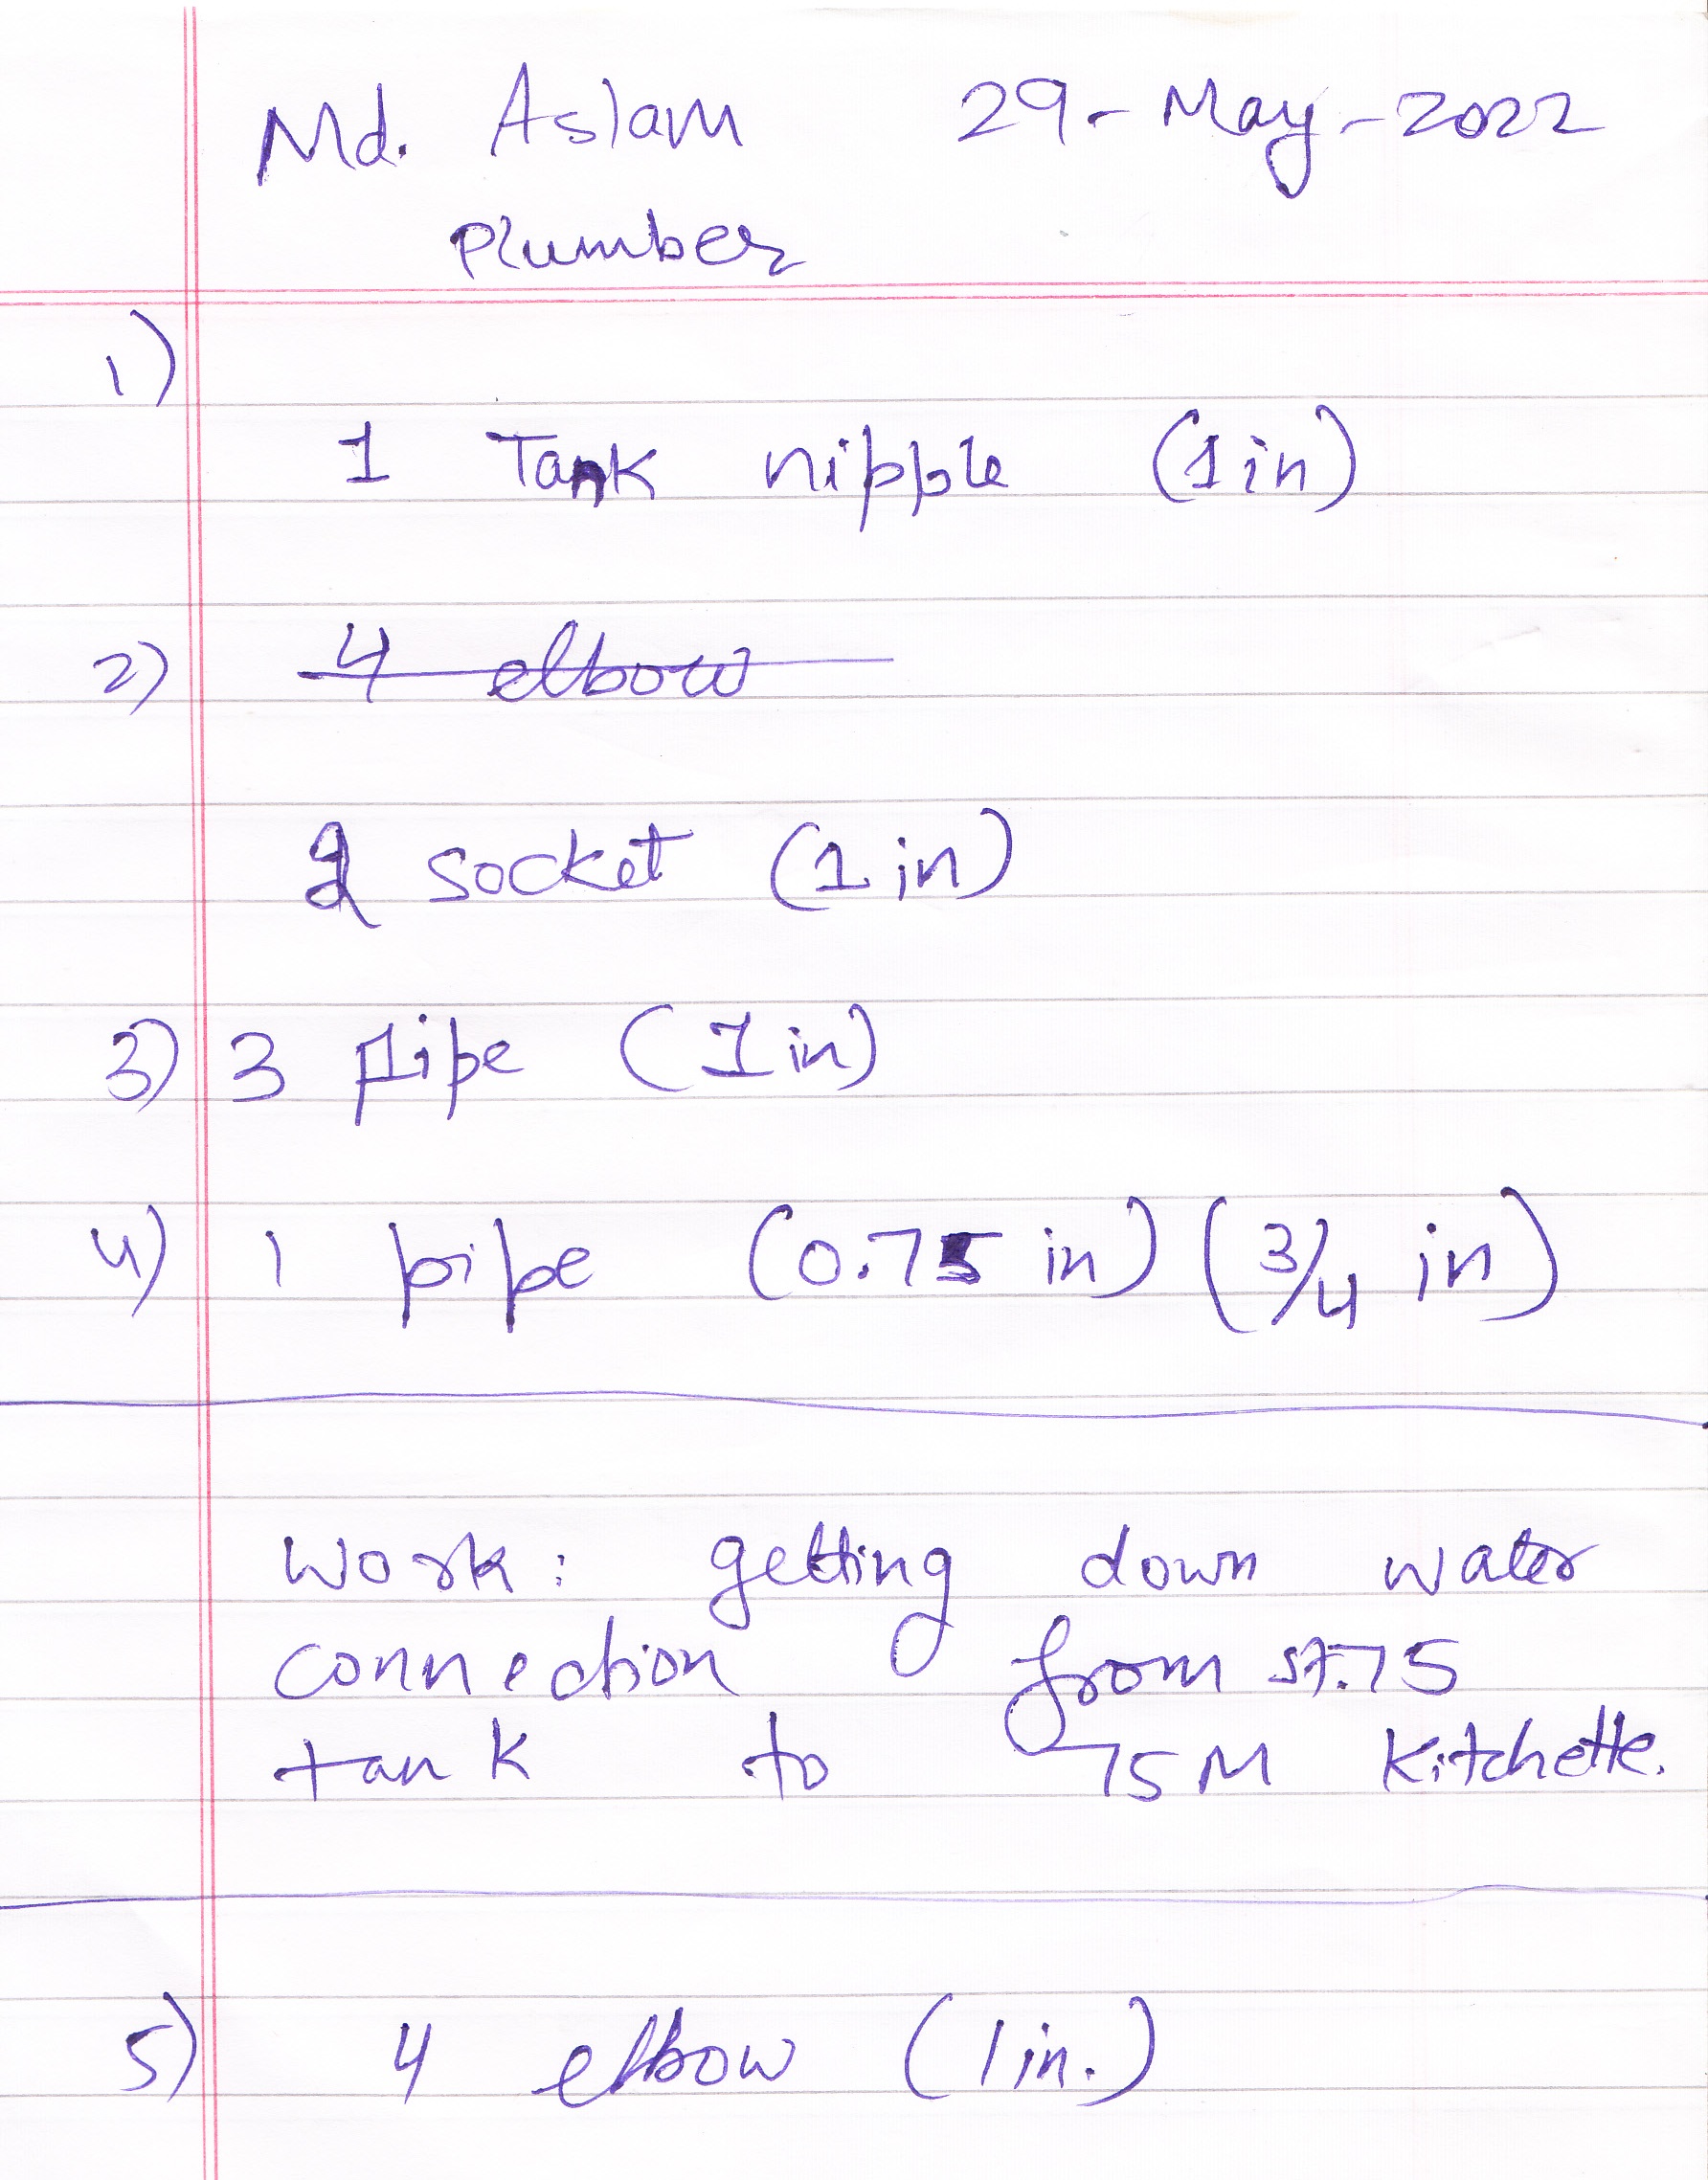 Md. Aslam 29-May-2022
Plumber
1)
1 Tank nipple (1in)
2) 4 elbow
2 socket (1 in)
3) 3 pipe (1 in)
4) 1 pipe (0.75 in) (3/4 in)
Work: getting down water
connection from st.75
tank to 75M Kitchette.
5) 4 elbow (1in.)